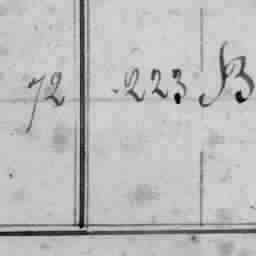 72 223 B